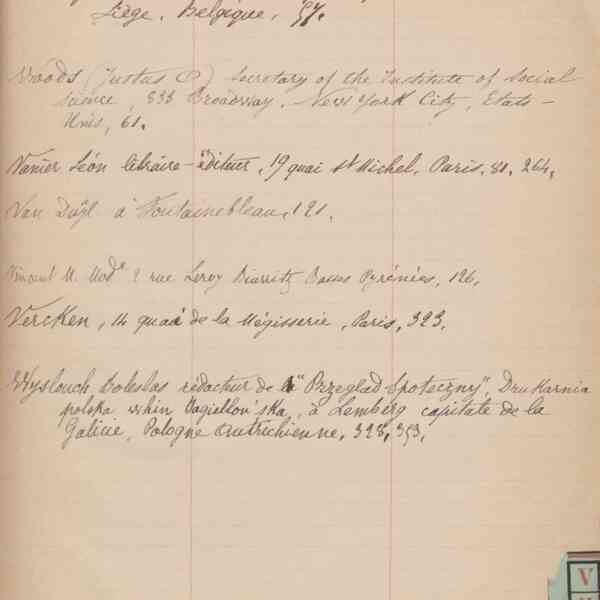 Liège, Belgique, 57.
Woods (Justus O) Secretary of the Institute of Social
science, 835 Broadway, New York City, Etats-
Unis, 61.
Vanier Léon libraire-éditeur, 19 quai St Michel, Paris, 81, 264,
Van Duÿl à Fontainebleau, 121.
Vincent M. Mod^e 2 rue Leroy Biarritz Basses Pyrénées, 126,
Vercken, 14 quai de la Mégisserie, Paris, 323,
Wyslouch boleslas rédacteur de la "Przeglad Spoteczny", Drukarnia
polska, à Lemberg capitale de la
Galicie, Pologne Autrichienne, 328, 353,
V